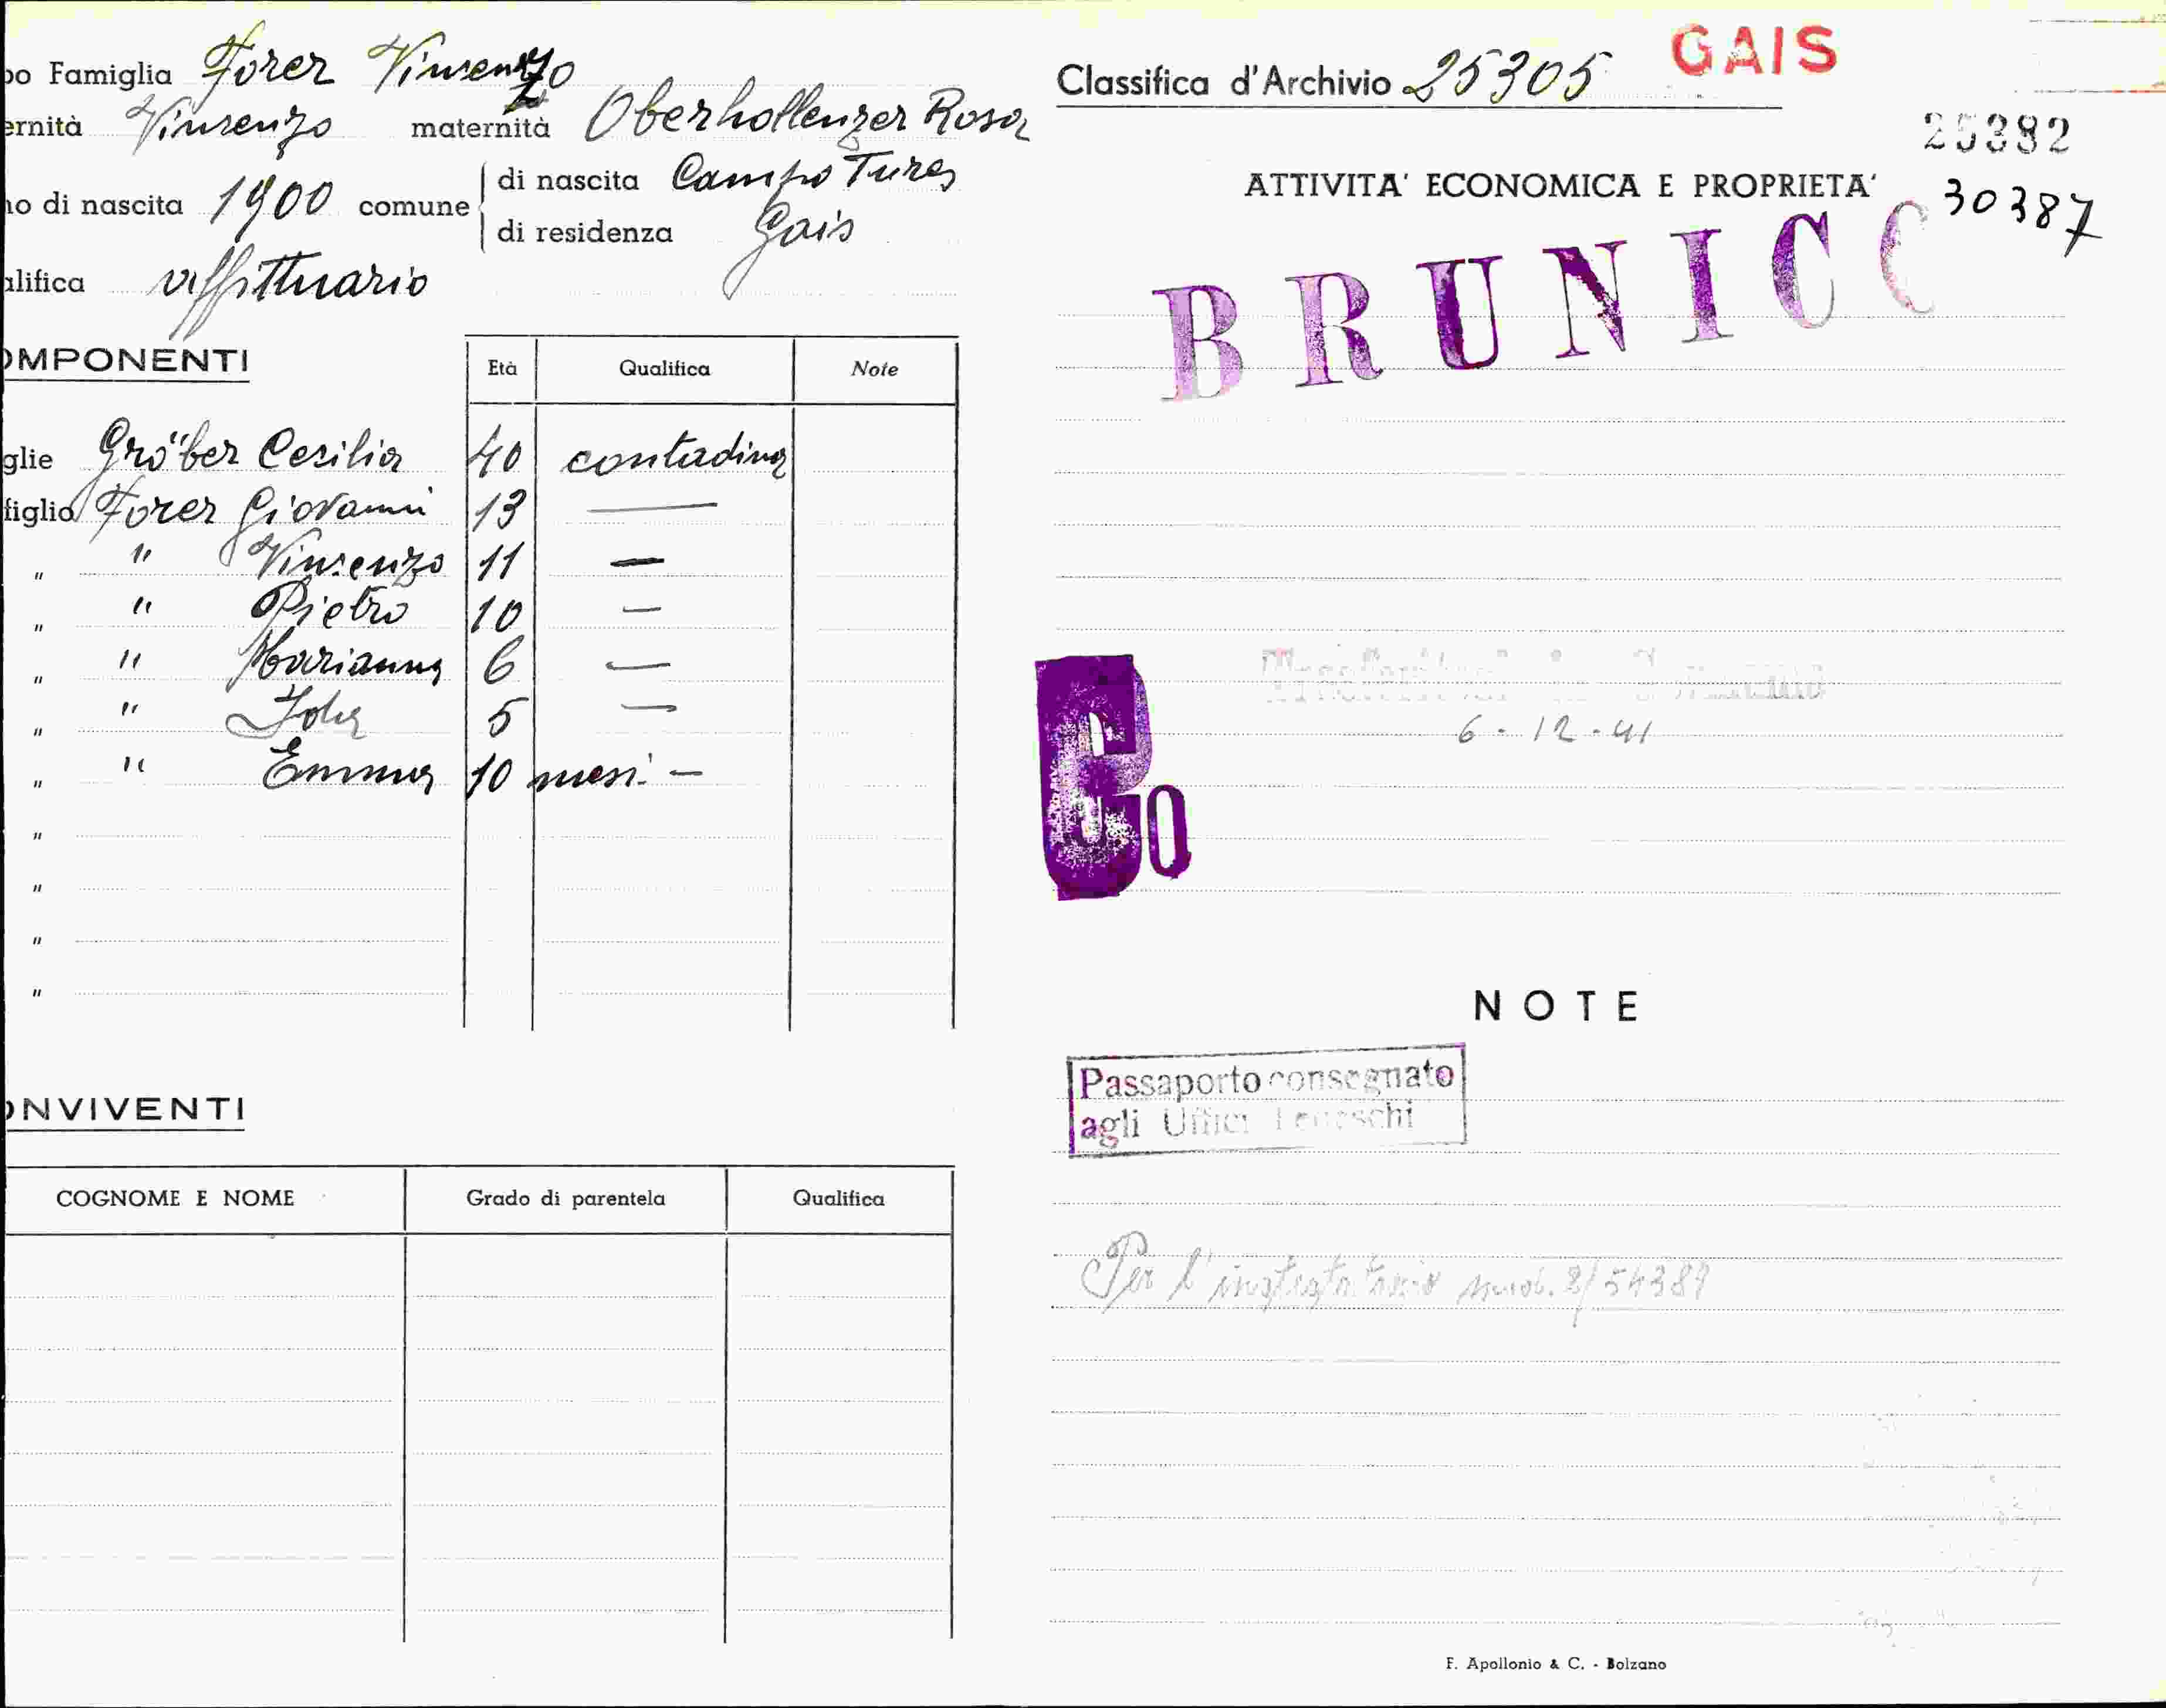 po Famiglia Forer Vinsenzo
ernità Vinsenzo maternità Oberhollenzer Rosa
no di nascita 1900 comune di nascita Campo Tures
di residenza Gais
alifica affittuario
OMPONENTI
Età Qualifica Note
glie Gröber Cesilia 40 contadina
figlio Forer Giovanni 13 —
" " Vinsenzo 11 —
" " Pietro 10 —
" " Marianna 6 —
" " Ida 5 —
" " Emma 10 mesi —
"
"
"
"
ONVIVENTI
COGNOME E NOME Grado di parentela Qualifica
Classifica d'Archivio 25305 GAIS
25382
ATTIVITA' ECONOMICA E PROPRIETA' 30387
BRUNICO
6-12-41
NOTE
Passaporto consegnato
agli Uffici Tedeschi
Per l'
F. Apollonio & C. - Bolzano